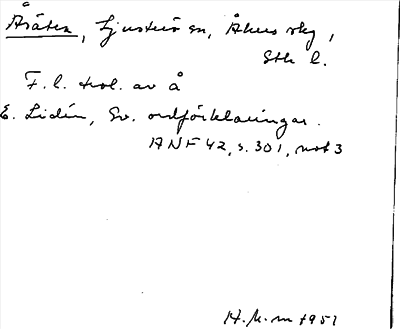 Åsäten, Ljusterö sn, Åkers skg,
Sth l.
F. l. trol. av å
E. Lidén, Sv. ordförklaringar.
ANF 42, s. 301, not 3
H. M-m 1951